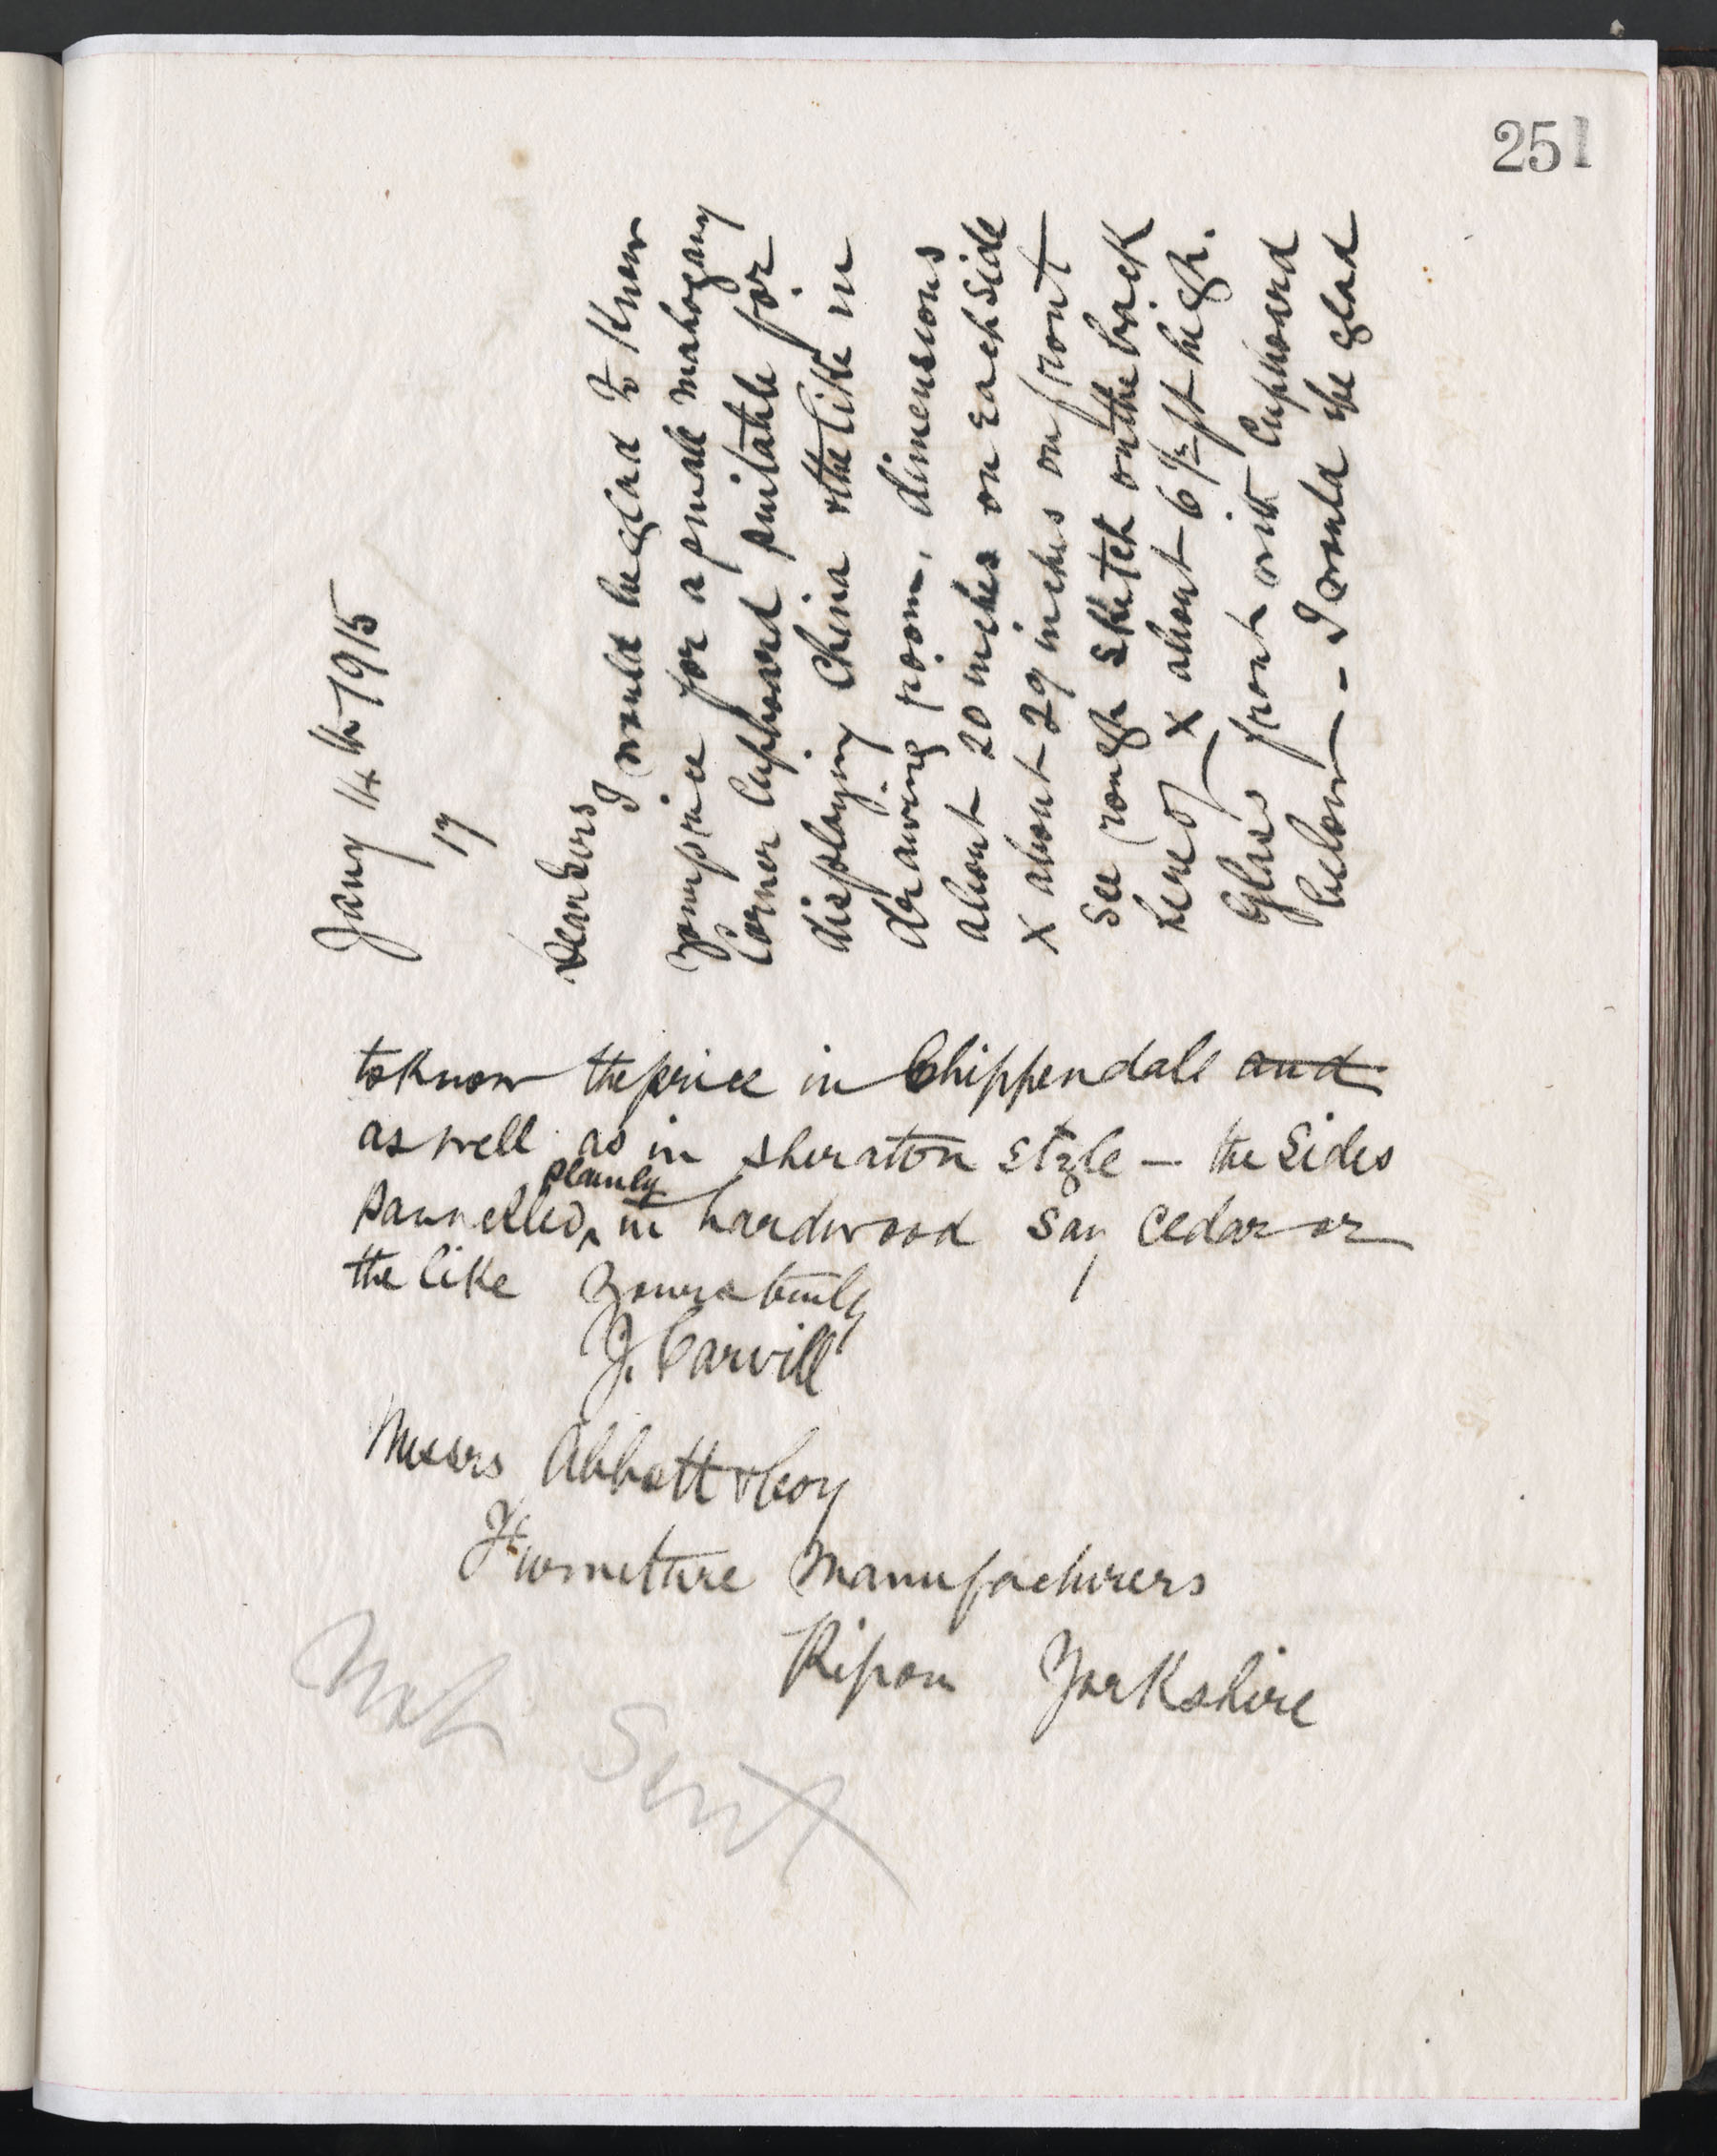 251
Jany 14th 1915
17
Dear Sirs
I would be glad to know
your price for a small mahogany
Corner Cupboard suitable for
displaying China & the like in
drawing room, dimensions
about 20 inches on each side
x about 29 inches on front
see rough sketch on the back
hereof x about 6½ ft high.
Glass front with Cupboard
below - I would be glad
to know the price in Chippendale ~~and~~
as well as in sheraton style — the sides
pannelled plainly in hardwood say cedar or
the like Yours truly
J. Carvill
Messrs Abbott & Coy
Furniture Manufacturers
Ripon Yorkshire
Not Sent